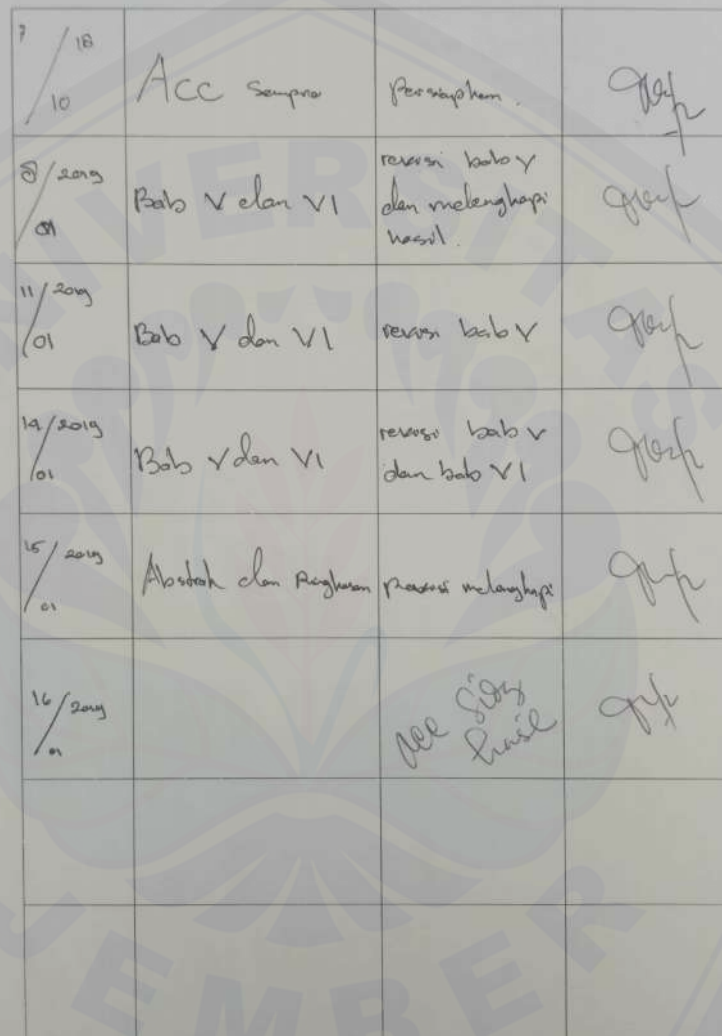 7/10 18
Acc Sempro
Persiapkan.
8/01 2019
Bab V dan VI
revisi bab V
dan melengkapi
hasil.
11/01 2019
Bab V dan VI
revisi bab V
14/01 2019
Bab V dan VI
revisi bab V
dan bab VI
15/01 2019
Abstrak dan Ringkasan
melengkapi
16/01 2019
Acc Sidang
hasil
UNIVERSITAS
JEMBER